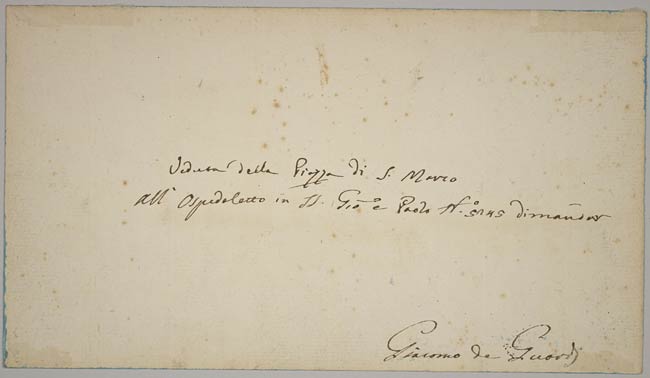 Veduta della Piazza di S. Marco
all' Ospedaletto in SS. Gio. e Paolo N.o 5245 dimandar
Giacomo de Guardi